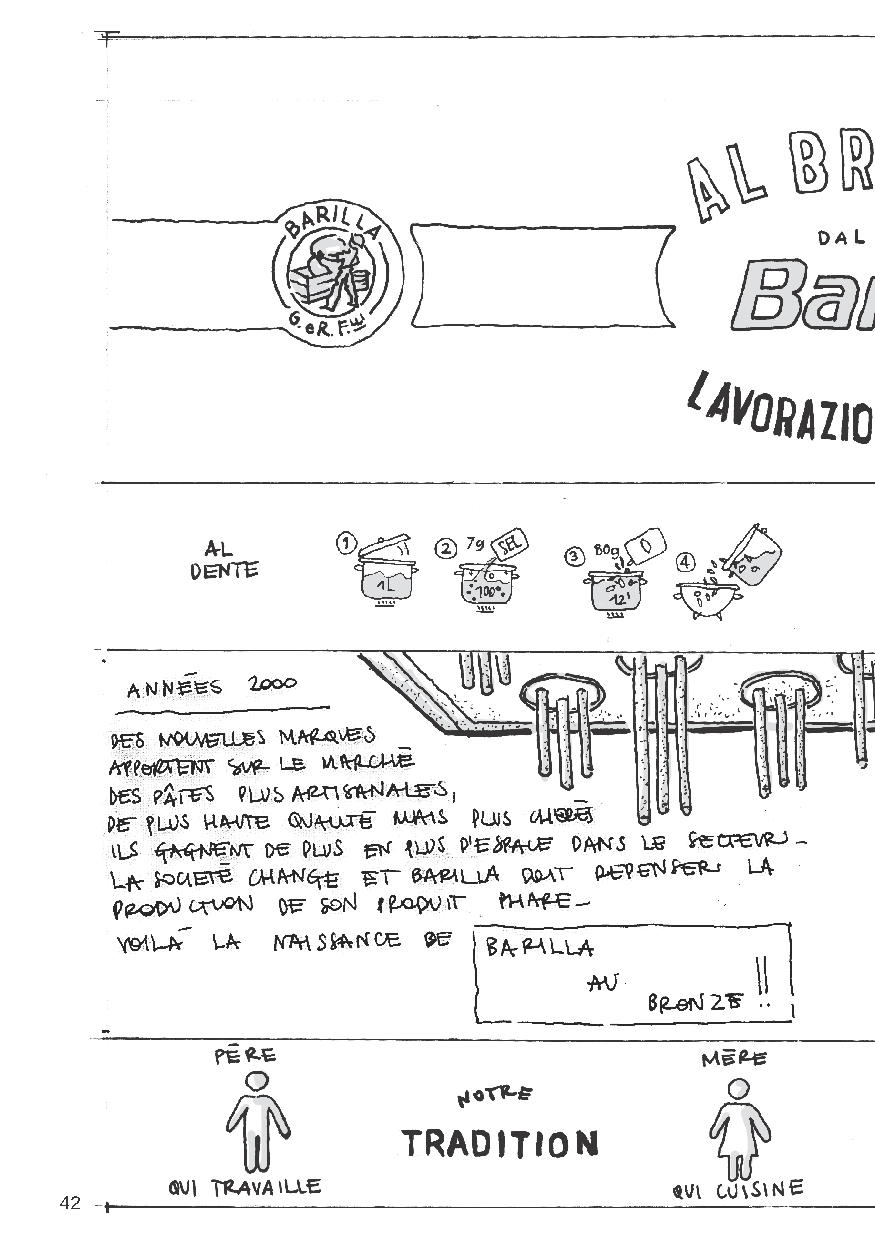 AL BR
BARILLA
DAL
Bar
G. e R. F.lli
LAVORAZIO
AL
DENTE
1
2
7g
SEL
3
80g
4
1L
100°
12'
ANNÉES 2000
DES NOUVELLES MARQUES
APPORTENT SUR LE MARCHÉ
DES PÂTES PLUS ARTISANALES,
DE PLUS HAUTE QUALITÉ MAIS PLUS CHÈRES
ILS GAGNENT DE PLUS EN PLUS D'ESPACE DANS LE SECTEUR.
LA SOCIETÉ CHANGE ET BARILLA DOIT REPENSER LA
PRODUCTION DE SON PRODUIT PHARE.
VOILÀ LA NAISSANCE DE
BARILLA
AU
BRONZE !!
PÈRE
MÈRE
NOTRE
TRADITION
QUI TRAVAILLE
QUI CUISINE
42